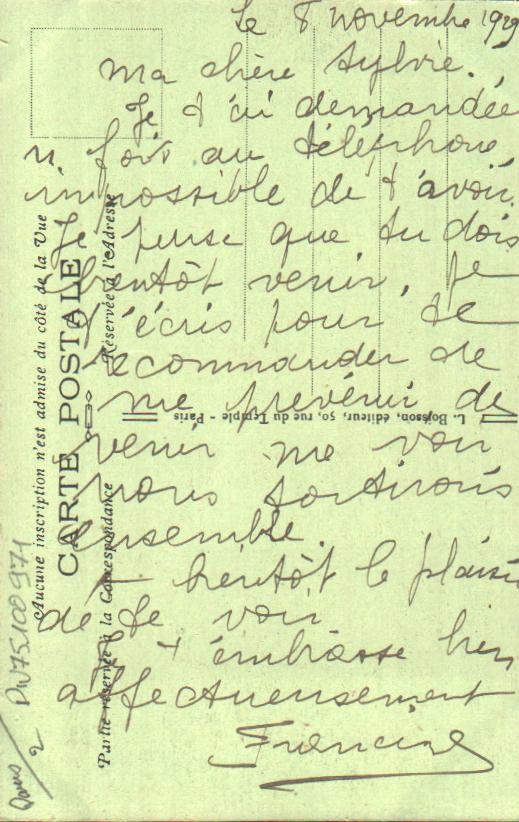 Le 8 novembre 1929
Ma chère Sylvie.
Je t'ai demandée
fois au téléphone,
impossible de t'avoir.
Je pense que tu dois
bientôt venir, je
t'écris pour te
recommander de
me prévenir de
venir me voir
nous sortirons
ensemble.
A bientôt le plaisir
de te voir
Je t'embrasse bien
affectueusement
Francine
CARTE POSTALE
Aucune inscription n'est admise du côté de la Vue
Partie réservée à la Correspondance
Réservée à l'Adresse
L. Boisson, éditeur, 50, rue du Temple - Paris
2